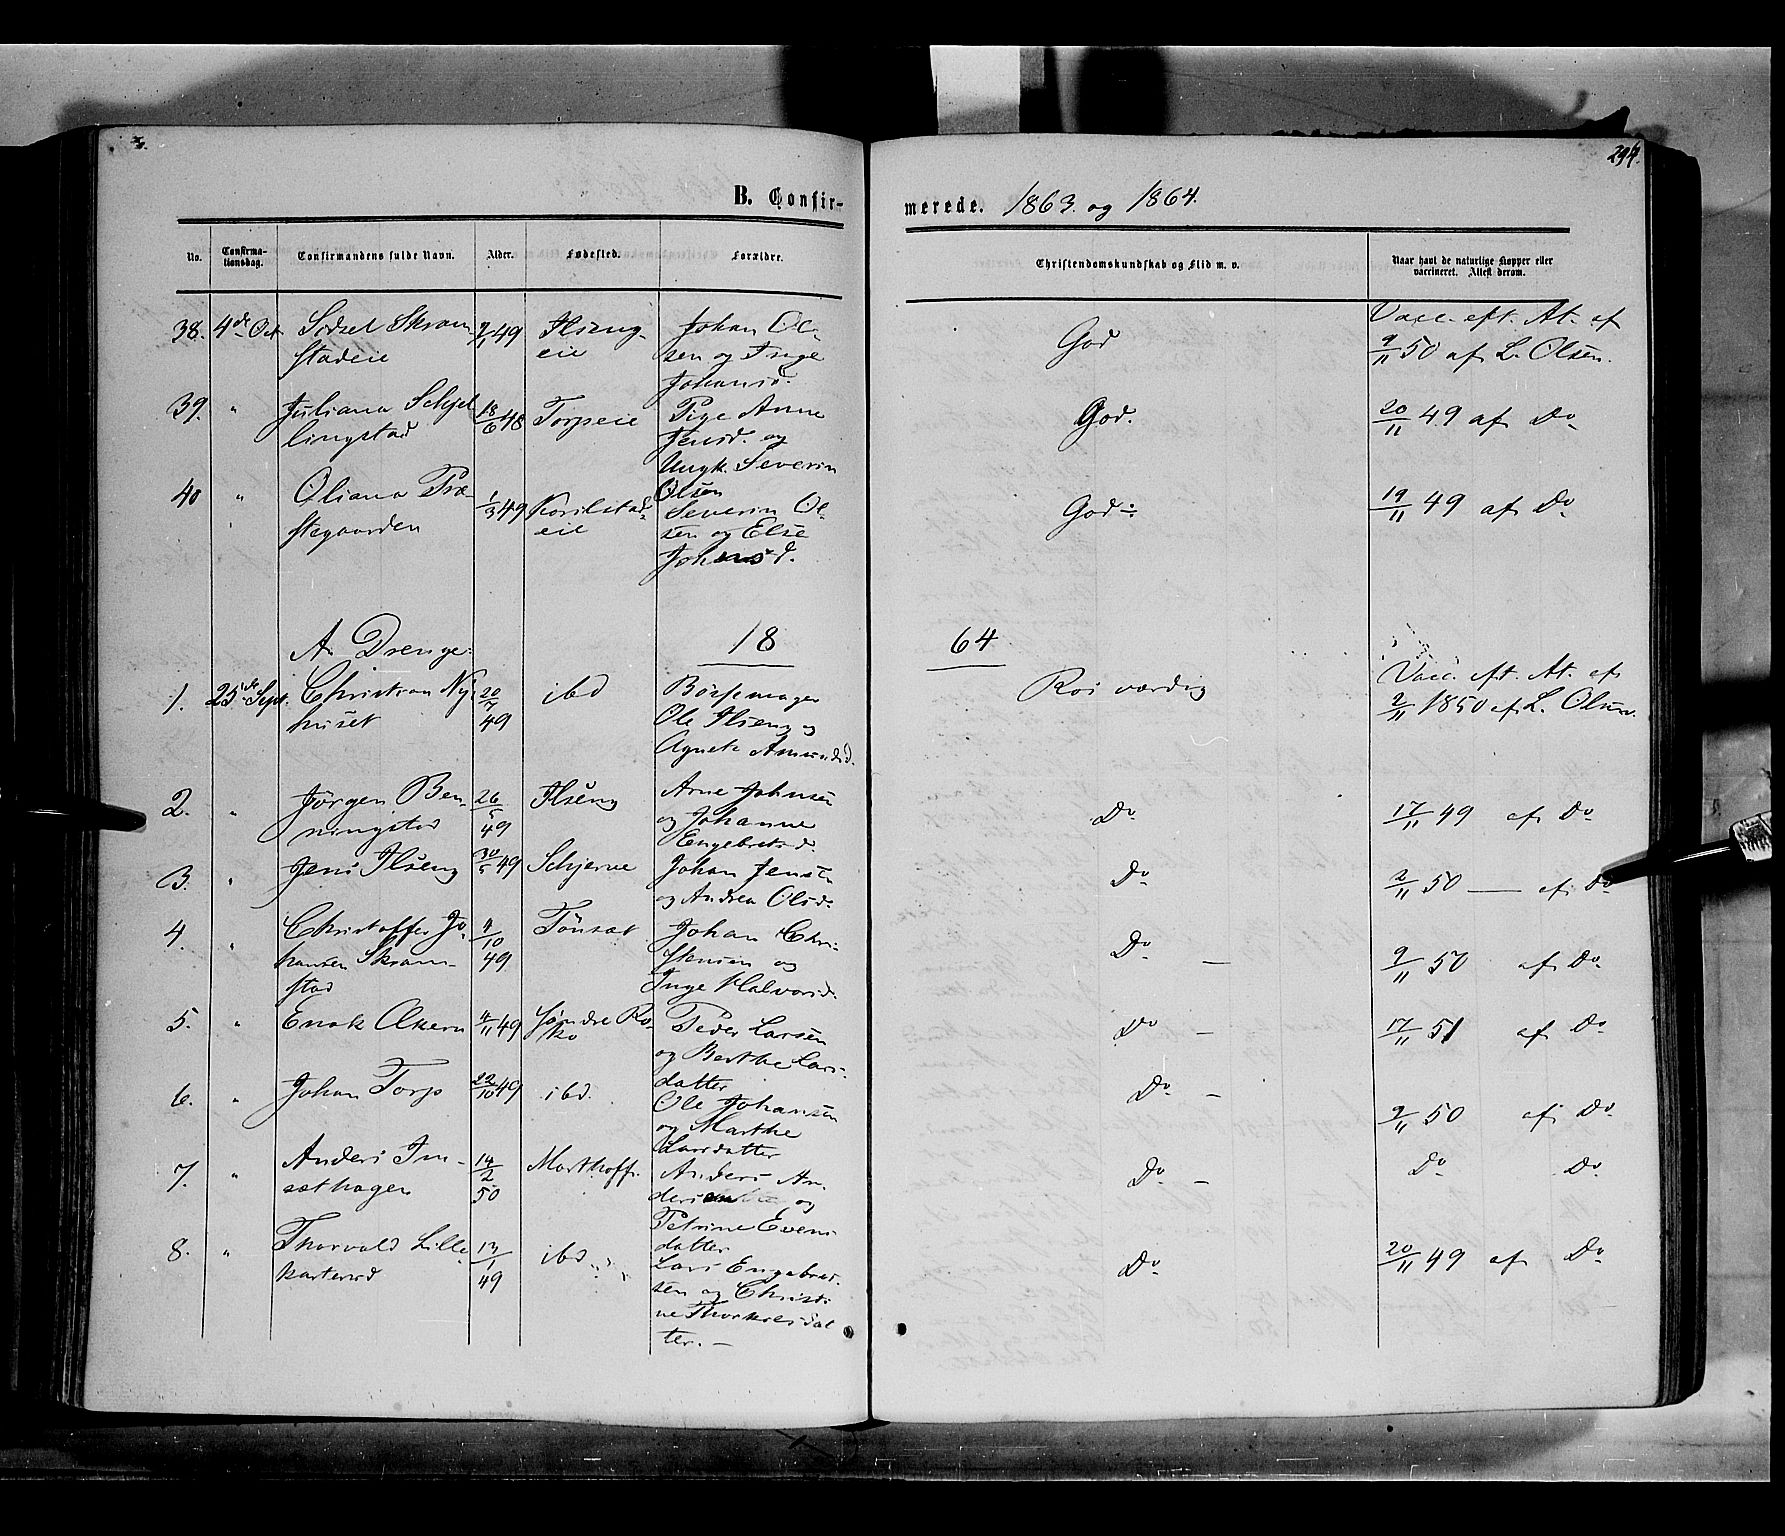 294.
B. Confirmerede. 1863. og 1864.
No. Confirmationsdag. Confirmandens fulde Navn. Alder. Fødested. Forældre. Christendomskundskab og Flid m. v. Naar havt de naturlige Kopper eller vaccineret. Attest derom.
38. 4de Oct Sidsel Skramstadeie 9/1 49 Ilsengeie Johan Olsen og Inge Johansd. God Vacc. eft. At. af 9/11 50 af L. Olsen.
39. " Juliana Schjellingstad 18/6 48 Torpeie Pige Anne Jensd. og Ungk. Severin Olsen God. 20/11 49 af Do
40 " Oliana Præstegaarden 1/3 49 Korilstadeie Severin Olsen og Else Johansd. God÷ 19/11 49 af Do
A. Drenge. 18 64
1. 25de Sept. Christian Nyhuset 20/7 49 ibd Børsemager Ole Ilseng og Agnete Amundsd. Roisværdig Vacc. eft. At. af 2/11 1850 af L. Olsen.
2. " Jørgen Benningstad 26/5 49 Ilseng Arne Johnsen og Johanne Engebretsd. Do 17/11 49 af Do
3. " Jens Ilseng 30/5 49 Schjerve Johan Jensen og Andrea Olsd. Do 2/11 50 — af Do
4. " Christoffer Johansen Skramstad 4/10 49 Tønset Johan Christensen og Inge Halvorsd. Do — 9/11 50 af Do
5. " Enok Akern 4/11 49 Søndre Roko Peder Larsen og Berthe Larsdatter Do — 17/11 51 af Do
6. " Johan Torp 22/10 49 ibd. Ole Johansen og Marthe Larsdatter Do — 9/11 50 af Do
7. " Anders Imsethagen 14/2 50 Morthoff. Anders Andersen og Petrine Evensdatter Do — Do Do
8. " Thorvald Lillekarterud 13/1 49 ibd Lars Engebretsen og Christine Thorkelsdatter. — Do 20/11 49 af Do